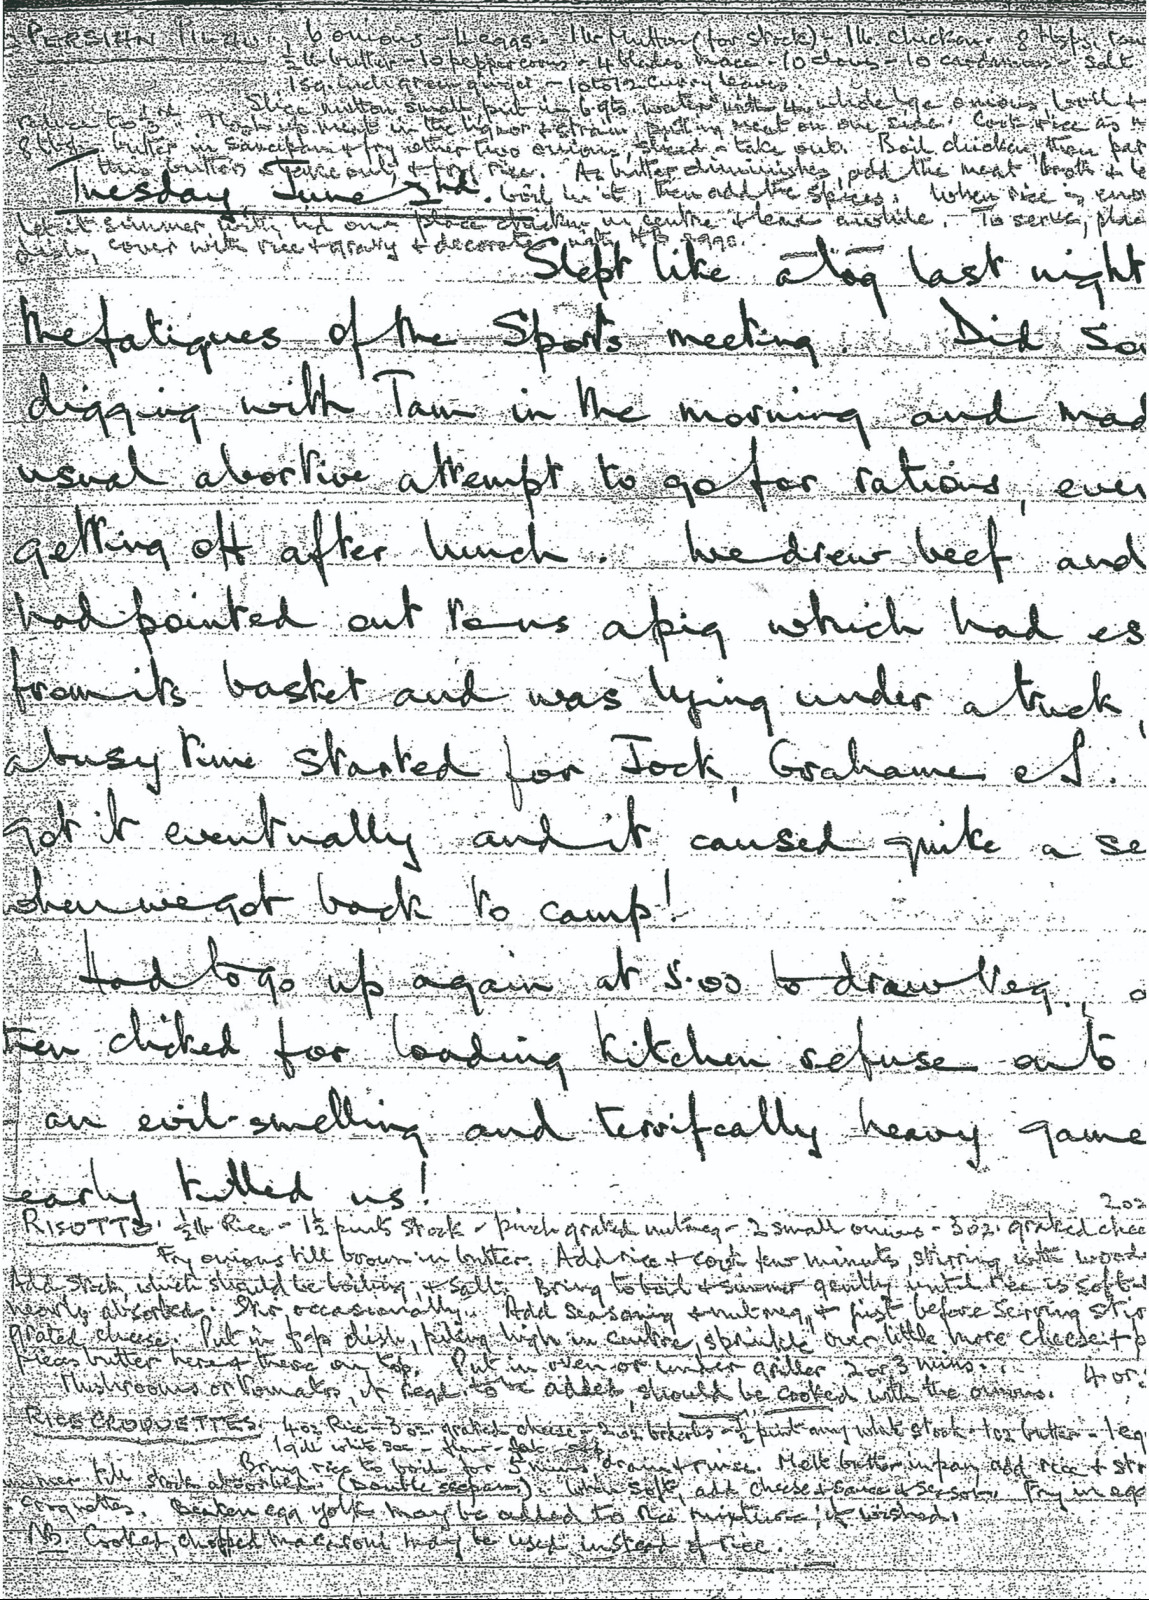 PERSIAN PILAU. 6 onions - 4 eggs - 1 lb. Mutton (for stock) - 1 lb. chicken - 8
½ lb butter - 10 peppercorns - 4 blades mace - 10 cloves - 10 cardamoms - Salt
1 sq. inch green ginger - 10 to 12 curry leaves.
Slice mutton small, put in 6 qts. water with 4 whole lge onions, boil &
reduce to ⅓rd. Mash up meat in the liquor & strain, putting meat on one side.
butter in saucepan & fry other two onions, sliced - take out. Boil chicken, then
this butter, take out, & fry rice. As butter diminishes, add the meat broth &
Tuesday, June 2nd.
boil in it, then add the spices. When rice is
let it simmer with lid on - place chicken in centre & leave awhile. To serve,
dish, cover with rice & gravy & decorate with H.B. eggs.
Slept like a log last night
the fatigues of the Sports meeting. Did
digging with Tam in the morning and
usual abortive attempt to go for rations,
getting off after lunch. We drew beef and
had pointed out to us a pig which had
from its basket and was lying under a truck,
a busy time started for Jock, Grahame &
got it eventually and it caused quite a
when we got back to camp!
Had to go up again at 5.00 to draw Veg.,
then clicked for loading kitchen refuse onto
an evil-smelling and terrifcally heavy game
killed us!
RISOTTO. ½ lb Rice - 1½ pints stock - pinch grated nutmeg - 2 small onions - 3 oz. grated
Fry onions till brown in butter. Add rice & cook few minutes, stirring with
Add Stock, which should be boiling, & salt. Bring to boil & simmer gently until rice is soft
nearly absorbed. Stir occasionally. Add seasoning & nutmeg, & just before serving stir
grated cheese. Put in f.p. dish, piling high in centre, sprinkle over little more cheese &
pieces butter here & there on top. Put in oven or under griller 2 or 3 mins.
Mushrooms or tomatoes, if reqd. to be added, should be cooked with the onions.
RICE CROQUETTES. 4 oz Rice - 3 oz grated cheese - 2 oz - ½ pint any white stock - 1 oz butter - 1
1 gill white sce - flour - fat
Bring rice to boil for 5 mins, drain & rinse. Melt butter in pan, add rice &
simmer till stock absorbed. (Double saucepan). When soft, add cheese & sauce & season. Fry in
croquettes. Beaten egg yolk may be added to rice mixture, if wished.
NB. Cooked, chopped macaroni may be used instead of rice.